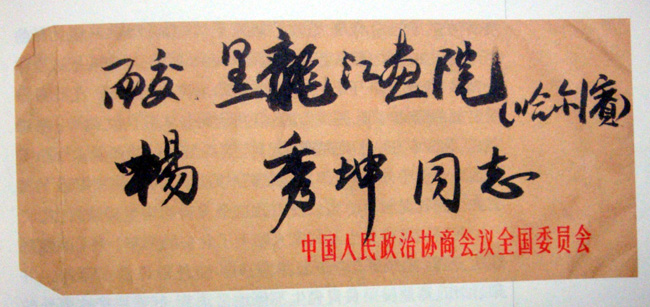 面交 黑龍江畫院(哈尔濱)
楊 秀坤 同志
中国人民政治协商会议全国委员会